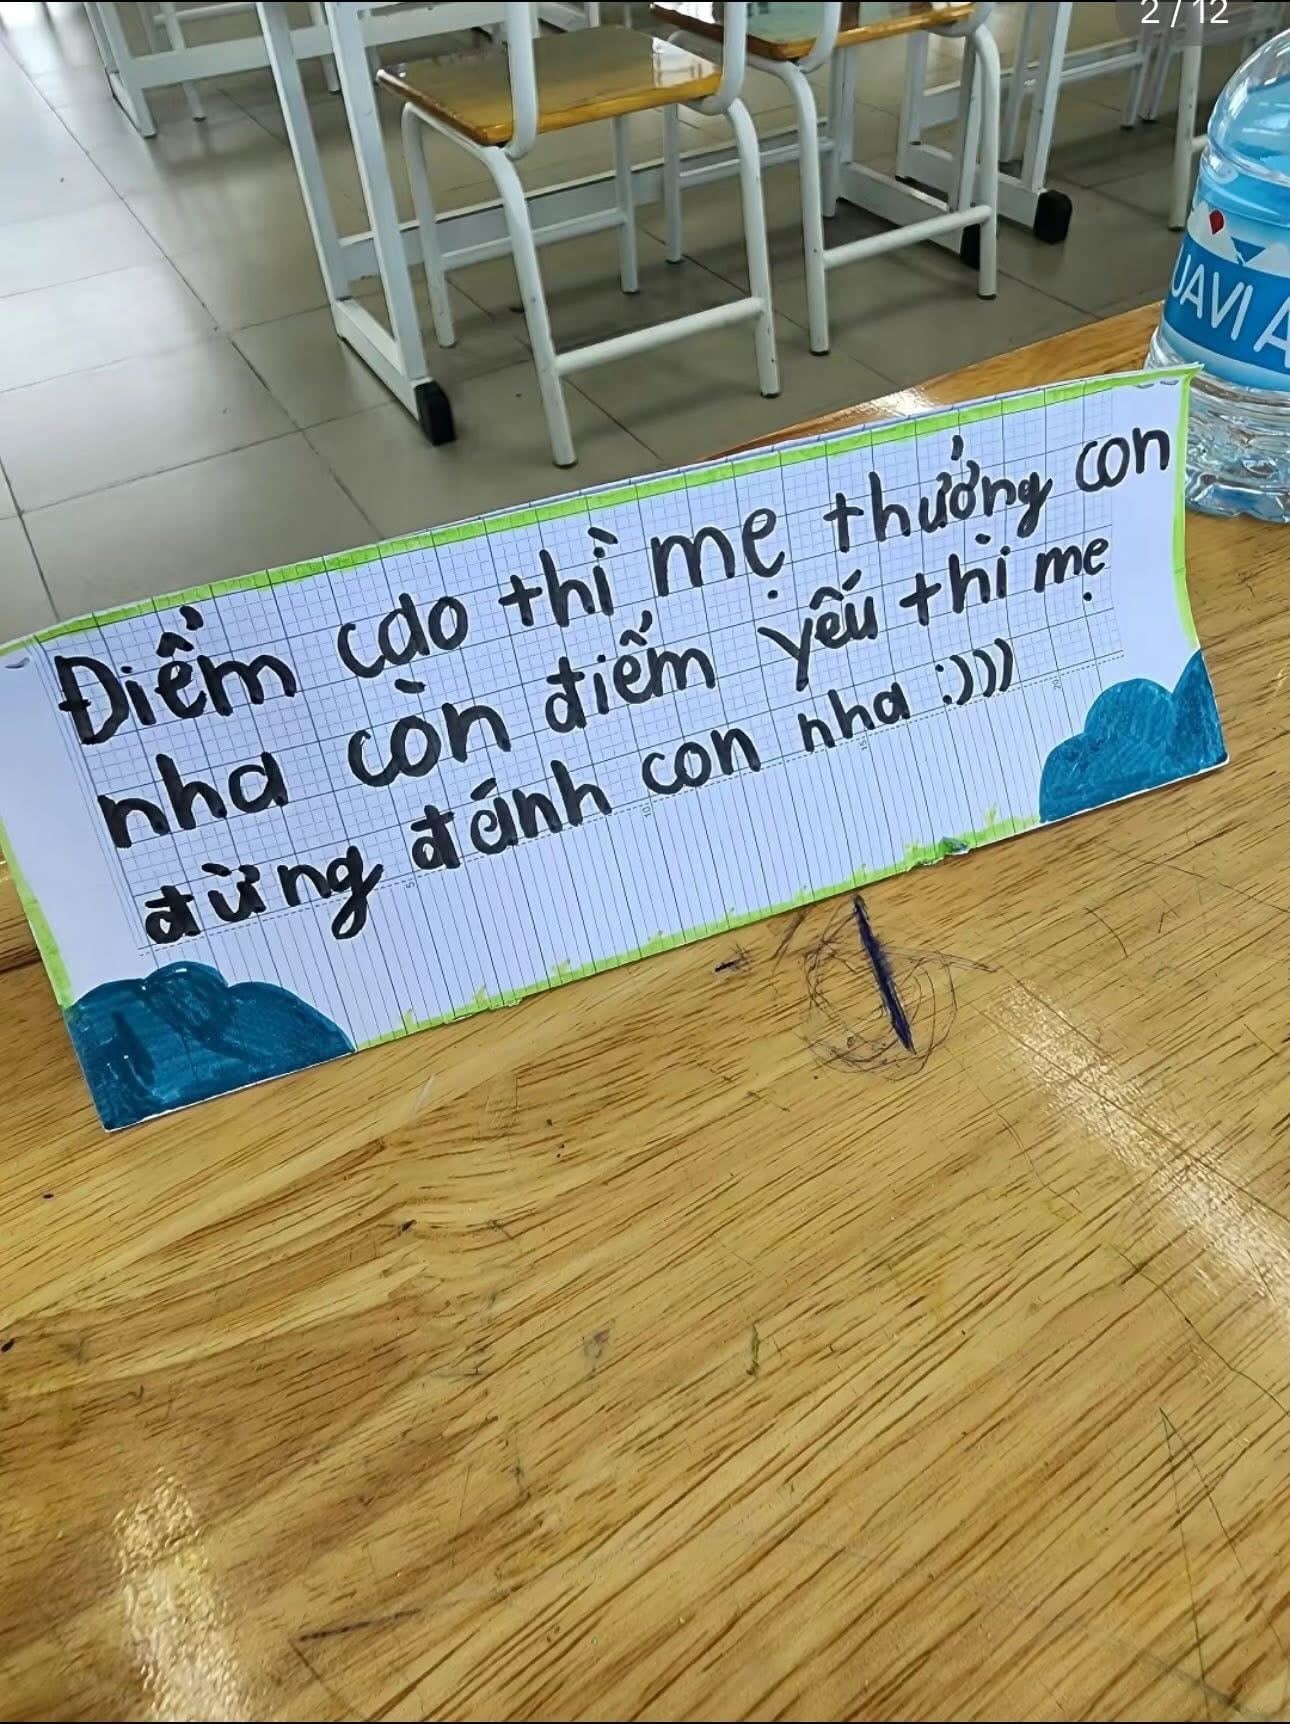 2 / 12
JAVI A
Điểm cao thì mẹ thưởng con
nha còn điểm yếu thì mẹ
đừng đánh con nha :)))